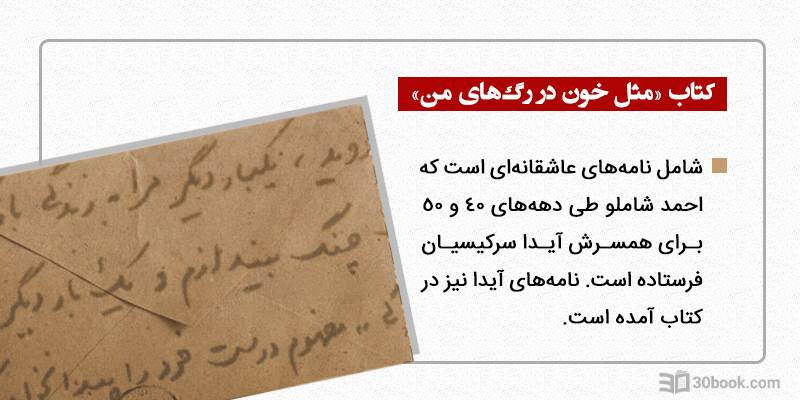 کتاب «مثل خون در رگ‌های من»
شامل نامه‌های عاشقانه‌ای است که
احمد شاملو طی دهه‌های ۴۰ و ۵۰
بـرای همسـرش آیـدا سرکیسیـان
فرستاده است. نامه‌های آیدا نیز در
کتاب آمده است.
روید، یکبار دیگر مرا به زندگی
چنگ بیندازم و یک بار دیگر
مفهوم درست خود را پیدا
30book.com